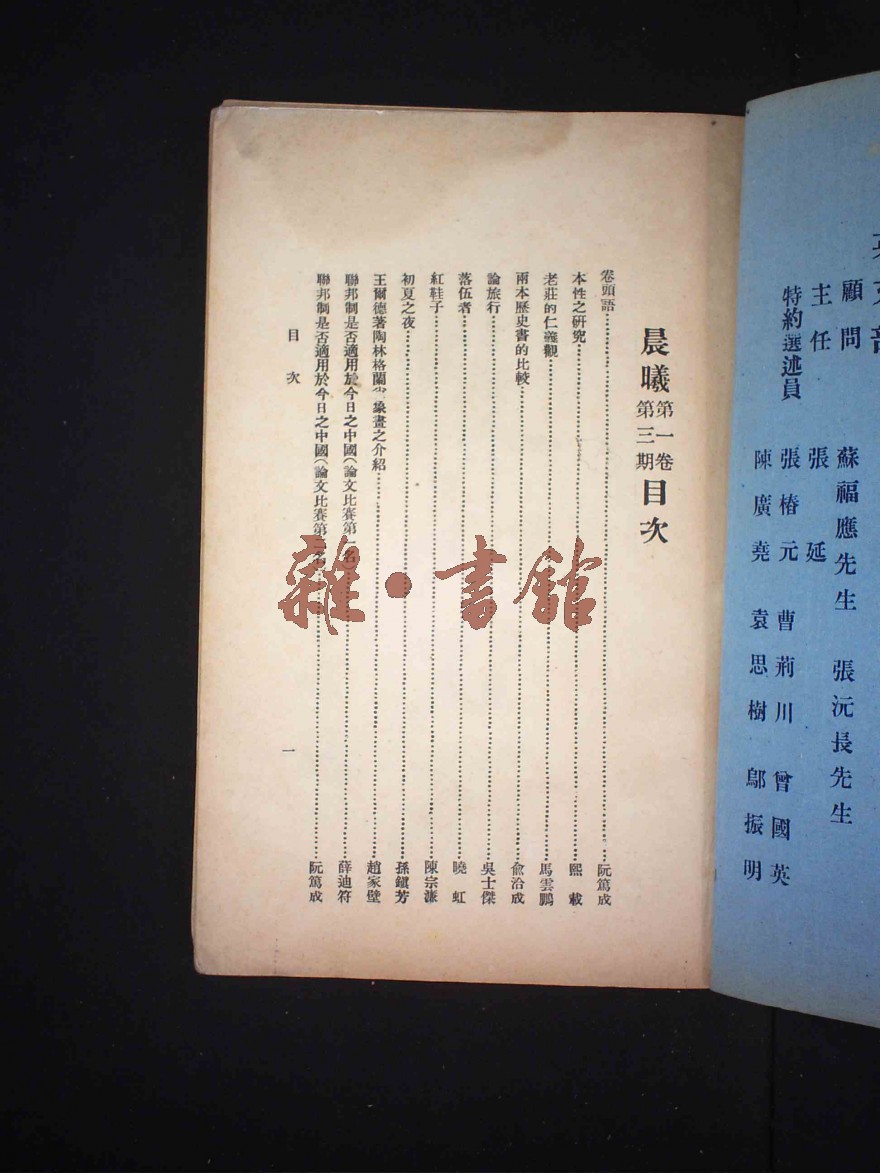 顧問 蘇福應先生 張沅長先生
主任 張延
特約選述員 張椿元 曹荊川 曾國英
陳廣堯 袁思樹 鄔振明
晨曦 第一卷 第三期 目次
卷頭語 阮篤成
本性之研究 熙載
老莊的仁義觀 馬雲鵬
兩本歷史書的比較 俞洽成
論旅行 吳士傑
落伍者 曉虹
紅鞋子 陳宗濂
初夏之夜 孫鎮芳
王爾德著陶林格蘭 象畫之介紹 趙家璧
聯邦制是否適用於今日之中國(論文比賽第一名) 薛迪符
聯邦制是否適用於今日之中國(論文比賽第 名) 阮篤成
目次
一
雜·書館